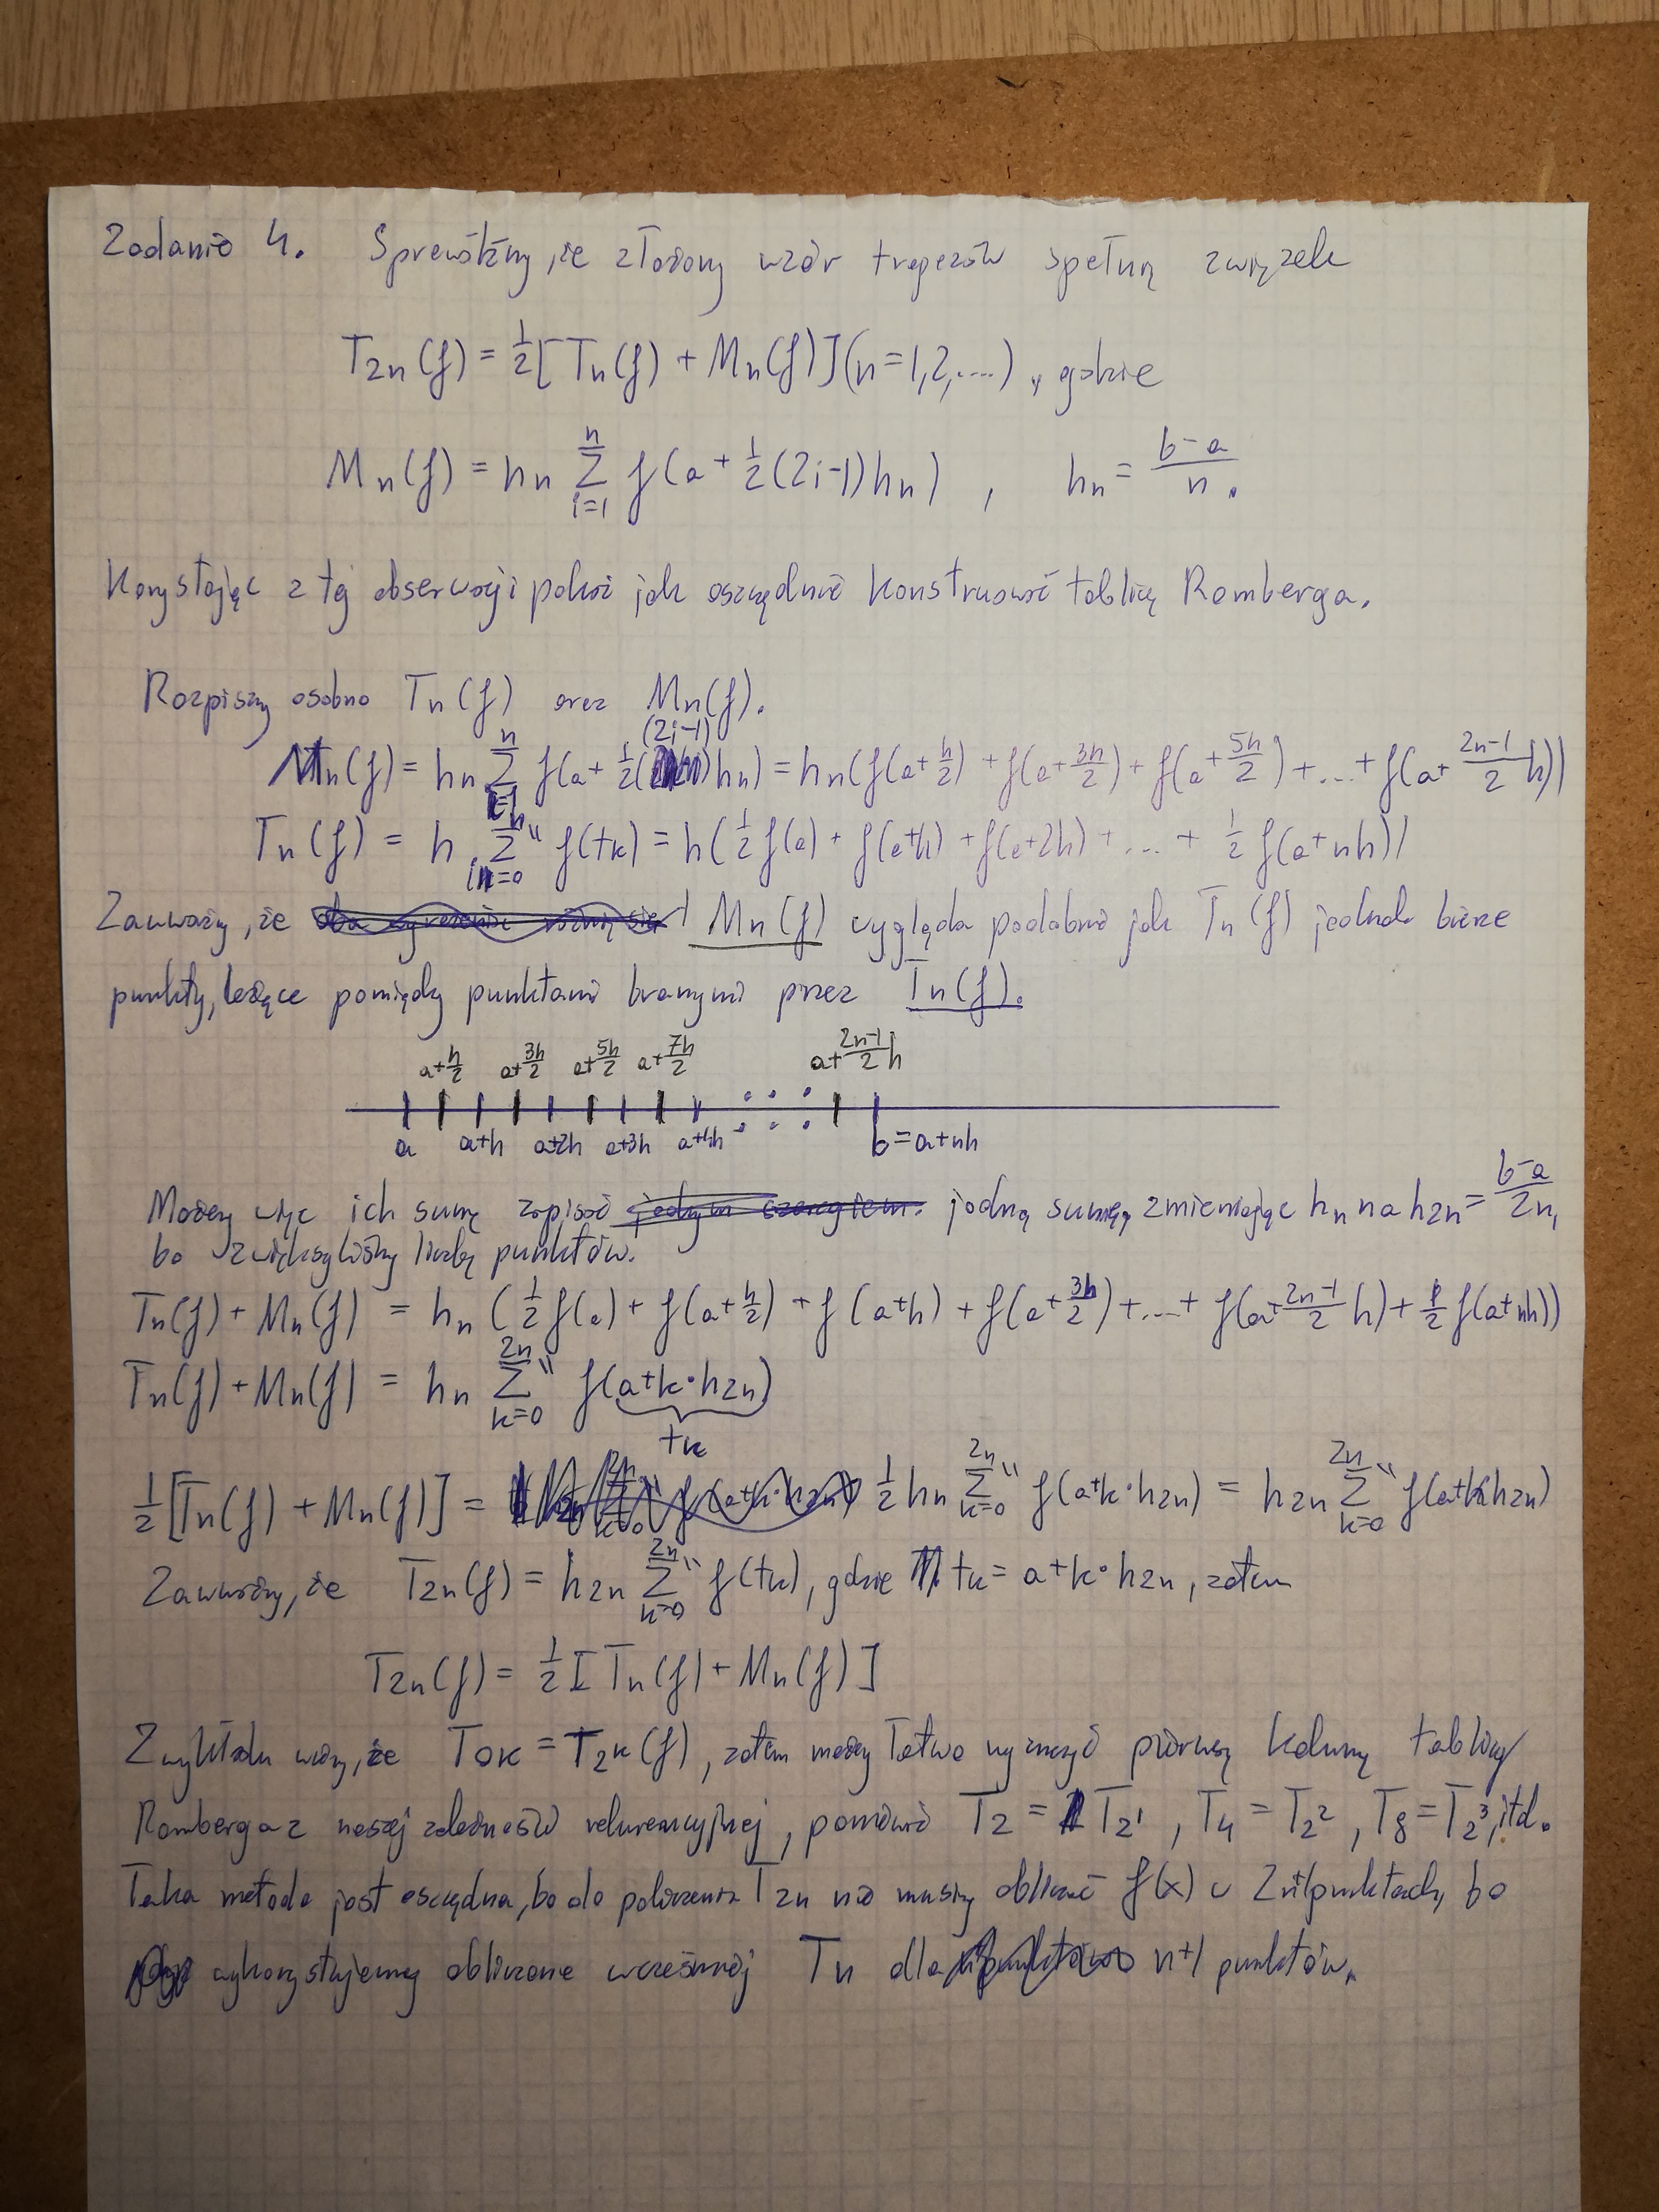 Zadanie 4. Sprawdźmy, że złożony wzór trapezów spełnia związek
T₂ₙ(f) = 1/2[Tₙ(f) + Mₙ(f)] (n=1,2,....), gdzie
Mₙ(f) = hₙ Σ_{i=1}^{n} f(a + 1/2(2i-1)hₙ) , hₙ = (b-a)/n.
Korzystając z tej obserwacji pokaż jak oszczędnie konstruować tablicę Romberga.
Rozpiszmy osobno Tₙ(f) oraz Mₙ(f).
Mₙ(f) = hₙ Σ_{i=1}^{n} f(a + 1/2(2i-1)hₙ) = hₙ(f(a+h/2) + f(a+3h/2) + f(a+5h/2) + ... + f(a+(2n-1)/2 h))
Tₙ(f) = h Σ''_{k=0}^{n} f(tₖ) = h(1/2 f(a) + f(a+h) + f(a+2h) + ... + 1/2 f(a+nh))
Zauważmy, że Mₙ(f) wygląda podobnie jak Tₙ(f) jednak bierze
punkty, leżące pomiędzy punktami branymi przez Tₙ(f).
a+h/2 a+3h/2 a+5h/2 a+7h/2 a+(2n-1)/2 h
a a+h a+2h a+3h a+4h b=a+nh
Możemy więc ich sumę zapisać jedną sumą, zmieniając hₙ na h₂ₙ = (b-a)/2n,
bo zwiększyliśmy liczbę punktów.
Tₙ(f) + Mₙ(f) = hₙ (1/2 f(a) + f(a+h/2) + f(a+h) + f(a+3h/2) + ... + f(a+(2n-1)/2 h) + 1/2 f(a+nh))
Tₙ(f) + Mₙ(f) = hₙ Σ''_{k=0}^{2n} f(a+k·h₂ₙ)
tₖ
1/2[Tₙ(f) + Mₙ(f)] = 1/2 hₙ Σ''_{k=0}^{2n} f(a+k·h₂ₙ) = h₂ₙ Σ''_{k=0}^{2n} f(a+k·h₂ₙ)
Zauważmy, że T₂ₙ(f) = h₂ₙ Σ''_{k=0}^{2n} f(tₖ), gdzie tₖ = a+k·h₂ₙ, zatem
T₂ₙ(f) = 1/2[Tₙ(f) + Mₙ(f)]
Z wykładu wiemy, że T₀ₖ = T_{2^k}(f), zatem możemy łatwo wyznaczyć pierwszą kolumnę tablicy
Romberga z naszej zależności rekurencyjnej, ponieważ T₂ = T_{2^1}, T₄ = T_{2^2}, T₈ = T_{2^3}, itd.
Taka metoda jest oszczędna, bo do policzenia T₂ₙ nie musimy obliczać f(x) w 2n+1 punktach, bo
wykorzystujemy obliczone wcześniej Tₙ dla n+1 punktów.